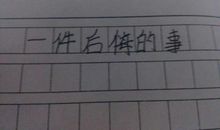 一件后悔的事